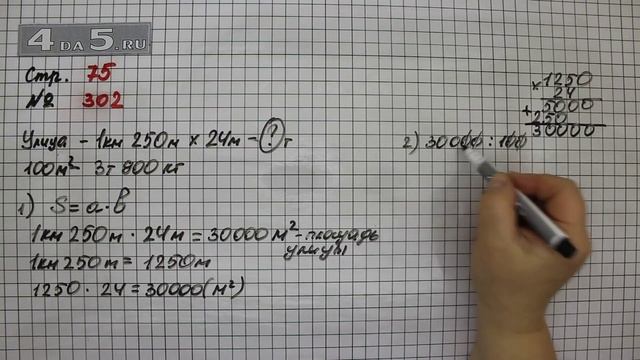 4DA5.RU
Стр. 75
№ 302
Улица - 1км 250м × 24м - ? т
100м² - 3т 800 кг
1) S = a·b
1км 250м · 24м = 30000 м² - площадь улицы
1км 250м = 1250м
1250 · 24 = 30000 (м²)
2) 30000 : 100
× 1250
24
5000
+ 250
30000